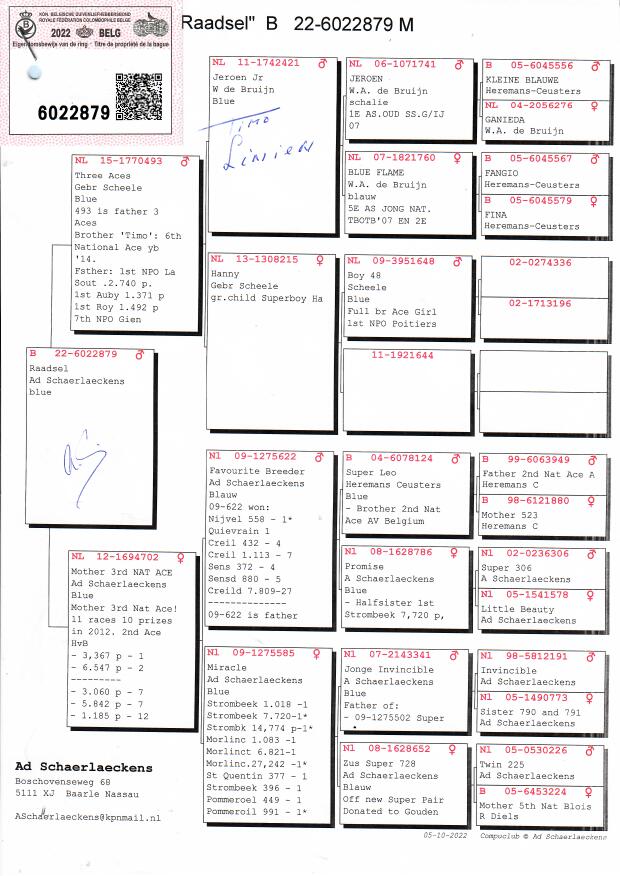 KON. BELGISCHE DUIVENLIEFHEBBERSBOND
ROYALE FÉDÉRATION COLOMBOPHILE BELGE
2022 BELG
Eigendomsbewijs van de ring - Titre de propriété de la bague
6022879
Raadsel" B 22-6022879 M
B 22-6022879 ♂
Raadsel
Ad Schaerlaeckens
blue
NL 15-1770493 ♂
Three Aces
Gebr Scheele
Blue
493 is father 3
Aces
Brother 'Timo': 6th
National Ace yb
'14.
Fsther: 1st NPO La
Sout .2.740 p.
1st Auby 1.371 p
1st Roy 1.492 p
7th NPO Gien
NL 12-1694702 ♀
Mother 3rd NAT ACE
Ad Schaerlaeckens
Blue
Mother 3rd Nat Ace!
11 races 10 prizes
in 2012. 2nd Ace
HvB
- 3,367 p - 1
- 6.547 p - 2
---------
- 3.060 p - 7
- 5.842 p - 7
- 1.185 p - 12
NL 11-1742421 ♂
Jeroen Jr
W de Bruijn
Blue
Timo
Linien
NL 13-1308215 ♀
Hanny
Gebr Scheele
gr.child Superboy Ha
Nl 09-1275622 ♂
Favourite Breeder
Ad Schaerlaeckens
Blauw
09-622 won:
Nijvel 558 - 1*
Quievrain 1
Creil 432 - 4
Creil 1.113 - 7
Sens 372 - 4
Sensd 880 - 5
Creild 7.809-27
--------------
09-622 is father
Nl 09-1275585 ♀
Miracle
Ad Schaerlaeckens
Blue
Strombeek 1.018 -1
Strombeek 7.720-1*
Strombk 14,774 p-1*
Morlinc 1.083 -1
Morlinct 6.821-1
Morlinc.27,242 -1*
St Quentin 377 - 1
Strombeek 396 - 1
Pommeroel 449 - 1
Pommeroil 991 - 1*
NL 06-1071741 ♂
JEROEN
W.A. de Bruijn
schalie
1E AS.OUD SS.G/IJ
07
NL 07-1821760 ♀
BLUE FLAME
W.A. de Bruijn
blauw
5E AS JONG NAT.
TBOTB'07 EN 2E
NL 09-3951648 ♂
Boy 48
Scheele
Blue
Full br Ace Girl
1st NPO Poitiers
11-1921644
B 04-6078124 ♂
Super Leo
Heremans Ceusters
Blue
- Brother 2nd Nat
Ace AV Belgium
Nl 08-1628786 ♀
Promise
A Schaerlaeckens
Blue
- Halfsister 1st
Strombeek 7,720 p,
Nl 07-2143341 ♂
Jonge Invincible
A Schaerlaeckens
Blue
Father of:
- 09-1275502 Super
Nl 08-1628652 ♀
Zus Super 728
Ad Schaerlaeckens
Blauw
Off new Super Pair
Donated to Gouden
B 05-6045556 ♂
KLEINE BLAUWE
Heremans-Ceusters
NL 04-2056276 ♀
GANIEDA
W.A. de Bruijn
B 05-6045567 ♂
FANGIO
Heremans-Ceusters
B 05-6045579 ♀
FINA
Heremans-Ceusters
02-0274336
02-1713196
B 99-6063949 ♂
Father 2nd Nat Ace A
Heremans C
B 98-6121880 ♀
Mother 523
Heremans C
Nl 02-0236306 ♂
Super 306
A Schaerlaeckens
Nl 05-1541578 ♀
Little Beauty
Ad Schaerlaeckens
Nl 98-5812191 ♂
Invincible
Ad Schaerlaeckens
Nl 05-1490773 ♀
Sister 790 and 791
Ad Schaerlaeckens
Nl 05-0530226 ♂
Twin 225
Ad Schaerlaeckens
B 05-6453224 ♀
Mother 5th Nat Blois
R Diels
Ad Schaerlaeckens
Boschovenseweg 68
5111 XJ Baarle Nassau
ASchaerlaeckens@kpnmail.nl
05-10-2022 Compuclub © Ad Schaerlaeckens